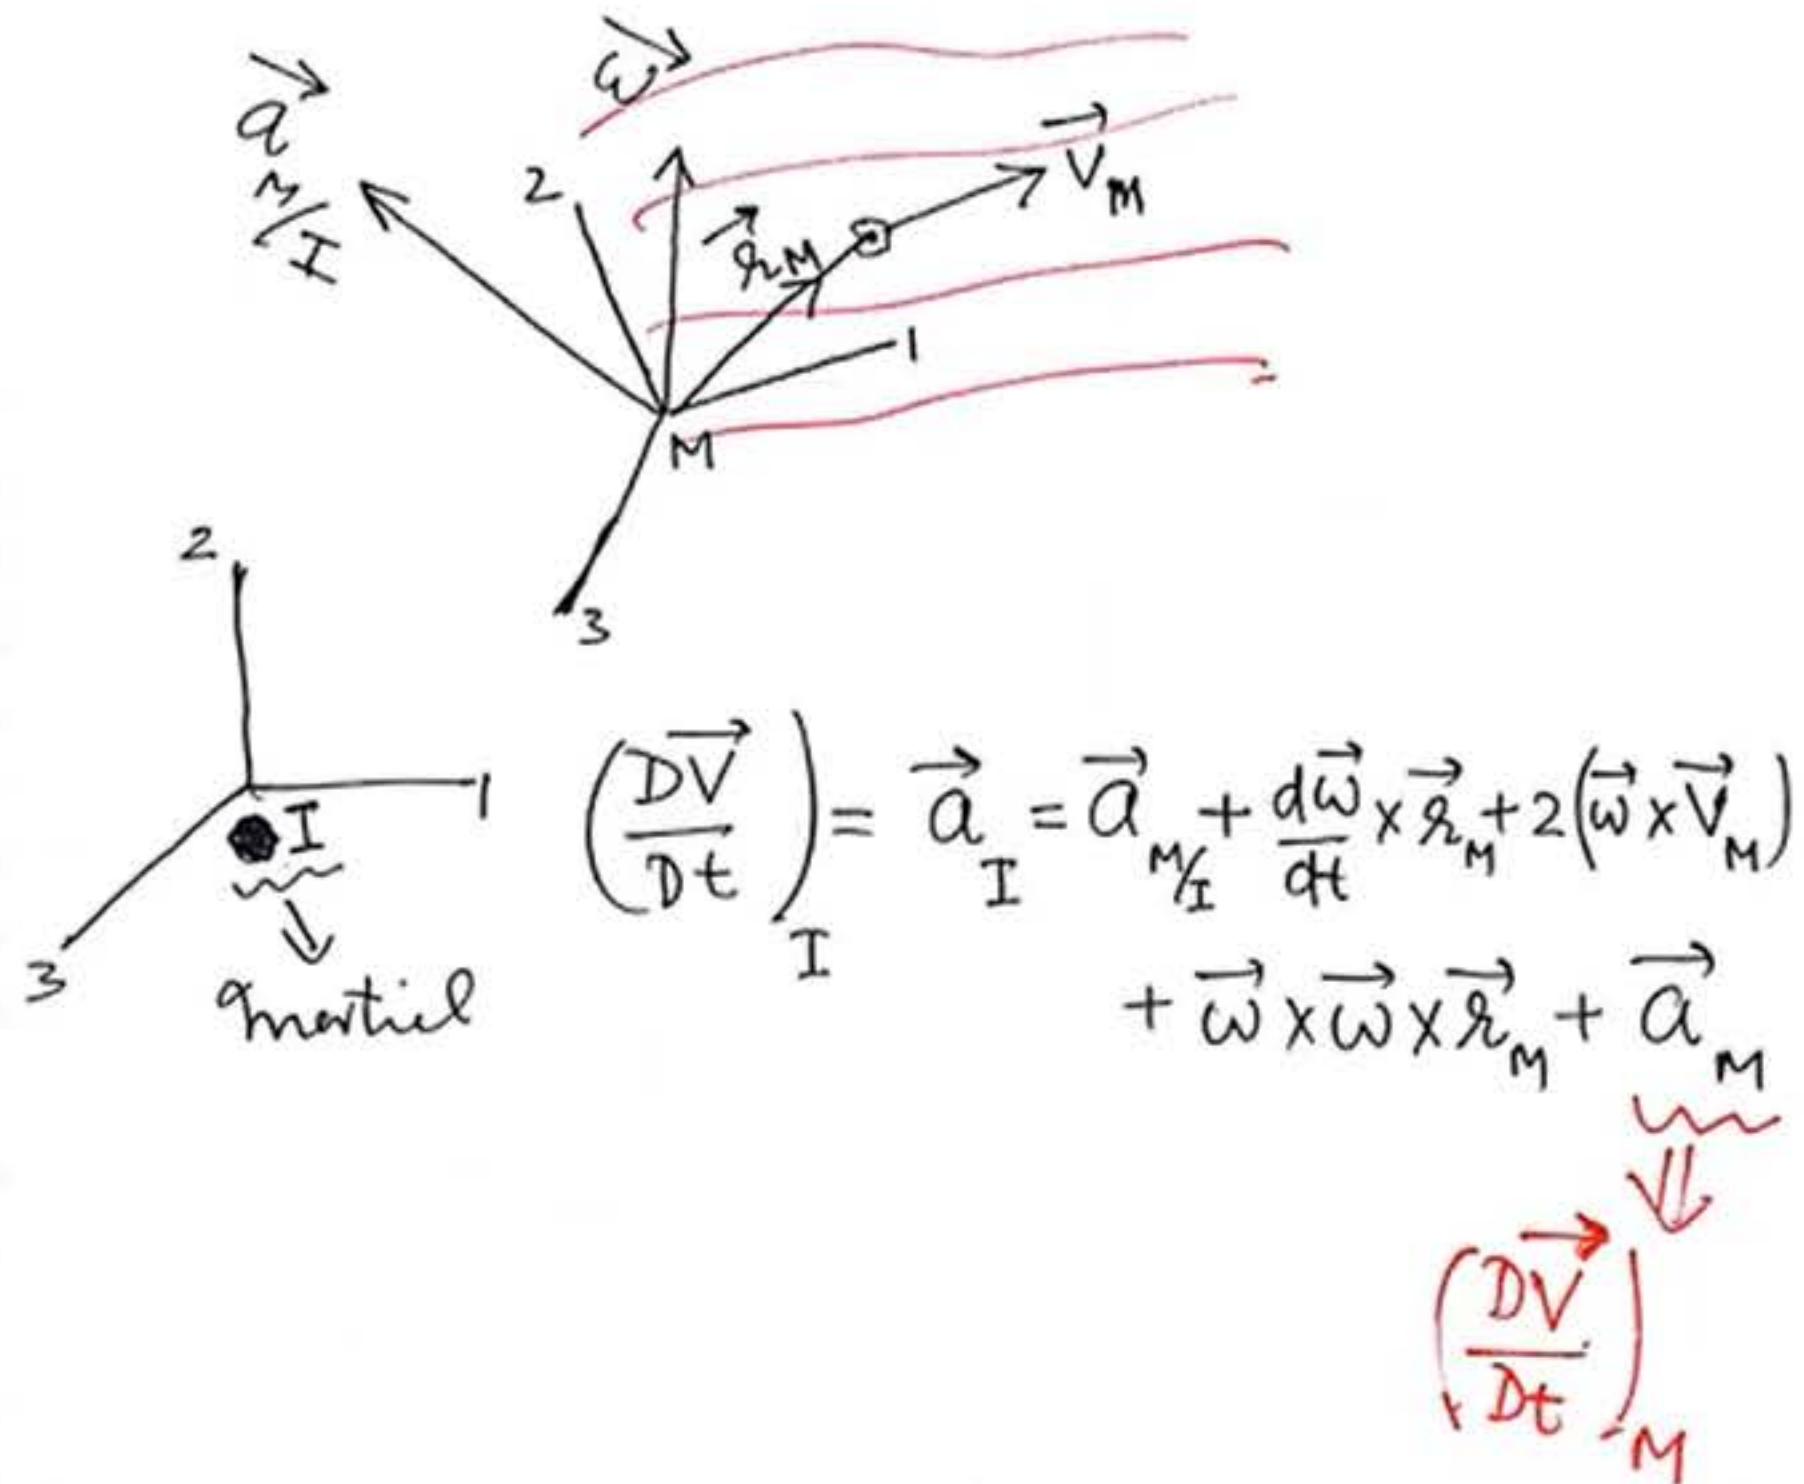 $\vec{a}_{M/I}$
$\vec{\omega}$
2
$\vec{r}_M$
$\vec{V}_M$
1
M
3
2
1
I
3
Inertial
$\left(\frac{D\vec{V}}{Dt}\right)_I = \vec{a}_I = \vec{a}_{M/I} + \frac{d\vec{\omega}}{dt} \times \vec{r}_M + 2(\vec{\omega} \times \vec{V}_M)$
$+ \vec{\omega} \times \vec{\omega} \times \vec{r}_M + \vec{a}_M$
$\left(\frac{D\vec{V}}{Dt}\right)_M$